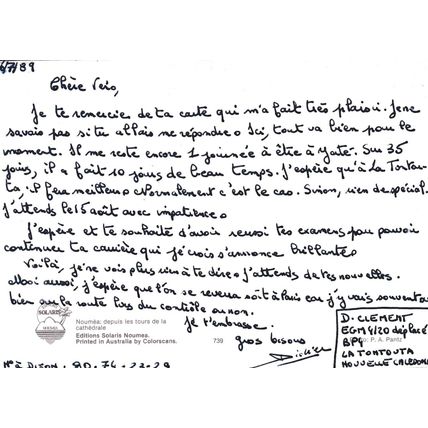 6/7/89
Chère Véro,
Je te remercie de ta carte qui m'a fait très plaisir. Je ne
savais pas si tu allais me répondre. Ici, tout va bien pour le
moment. Il ne reste encore 1 journée à être à Yaté. Sur 35
jours, il a fait 10 jours de beau temps. J'espère qu'à La Tontou-
ta, il fera meilleur. Normalement c'est le cas. Sinon, rien de spécial.
J'attends le 15 août avec impatience.
J'espère et te souhaite d'avoir réussi tes examens pour pouvoir
continuer ta carrière qui je crois s'annonce brillante.
Voilà, je ne vois plus rien à te dire. J'attends de tes nouvelles.
Moi aussi, j'espère que l'on se reverra soit à Paris car j'y vais souvent ou
bien sur la route lors du contrôle ou non.
Je t'embrasse.
gros bisous
Didier
SOLARIS
Nouméa: depuis les tours de la
cathédrale
Editions Solaris Noumea.
Printed in Australia by Colorscans.
739
Photo: P. A. Pantz
D. CLEMENT
EGM 9/20 déplacé
BP1
LA TONTOUTA
NOUVELLE CALEDONIE